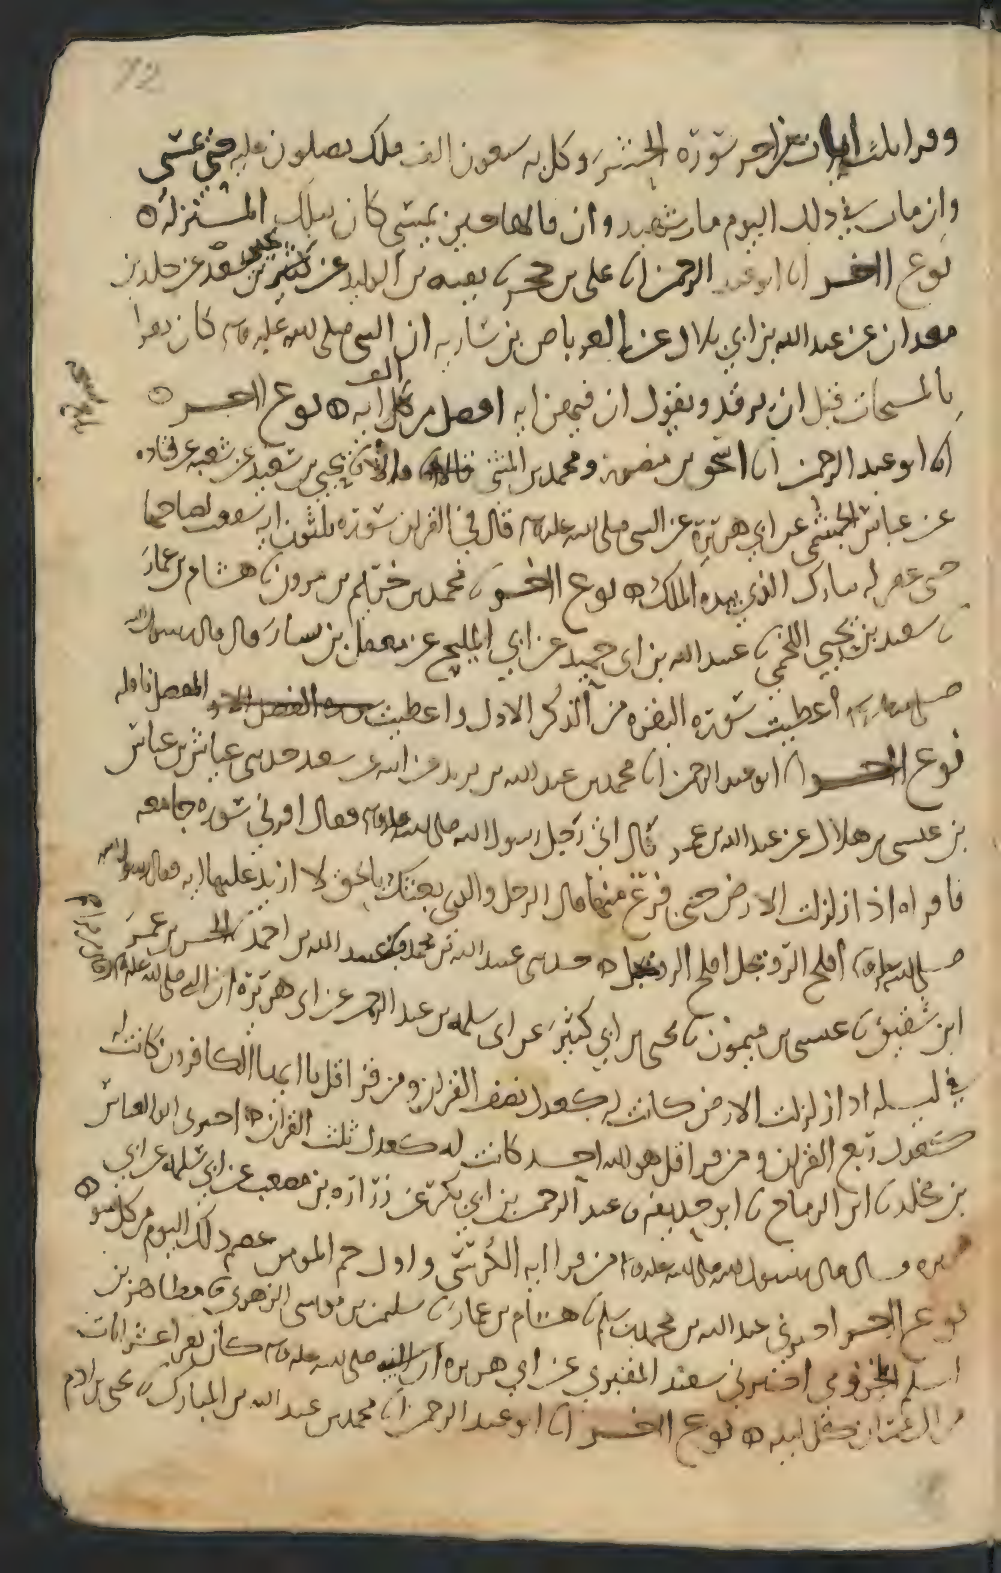 72
وقرا ثلث ايات من اخر سورة الحشر وكل به سبعون الف ملك يصلون عليه حتى يمسي
وان مات في ذلك اليوم مات شهيد وان قالها حين يمسي كان بتلك المنزلة
نوع اخر انا ابو عبد الرحمن انا علي بن حجر نا بقية بن الوليد عن بحير بن سعد عن خلد بن
معدان عن عبد الله بن ابي بلال عن العرباض بن سارية ان النبي صلى الله عليه وسلم كان يقرا
بالمسبحات قبل ان يرقد ويقول ان فيهن اية افضل من الف اية نوع اخر
انا ابو عبد الرحمن انا اسحق بن منصور ومحمد بن المثنى قالا نا يحيى بن سعيد عن شعبة عن قتادة
عن عباس الجشمي عن ابي هريرة عن النبي صلى الله عليه وسلم قال في القران سورة ثلثون اية شفعت لصاحبها
حتى غفر له تبارك الذي بيده الملك نوع اخر نا محمد بن خريم بن مرون نا هشام بن عمار
نا سعد بن يحيى اللخمي نا عبيد الله بن ابي حميد عن ابي المليح عن معقل بن يسار قال قال رسول الله
صلى الله عليه وسلم اعطيت سورة البقرة من الذكر الاول واعطيت المفصل نافلة
نوع اخر انا ابو عبد الرحمن انا محمد بن عبد الله بن يزيد عن ابيه عن سعيد حدثني عياش بن عباس
بن عيسى بن هلال عن عبد الله بن عمرو قال اتى رجل رسول الله صلى الله عليه وسلم فقال اقرئني سورة جامعة
فاقراه اذا زلزلت الارض حتى فرغ منها قال الرجل والذي بعثك بالحق لا ازيد عليها ابدا فقال رسول الله
صلى الله عليه وسلم افلح الرويجل افلح الرويجل حدثني عبد الله بن احمد الحسن بن عمر
ابن شقيق نا عيسى بن ميمون نا يحيى بن ابي كثير عن ابي سلمة بن عبد الرحمن عن ابي هريرة ان النبي صلى الله عليه وسلم
في ليلة اذا زلزلت الارض كانت له كعدل نصف القران ومن قرا قل يا ايها الكافرون كانت له
كعدل ربع القران ومن قرا قل هو الله احد كانت له كعدل ثلث القران اخبرني ابو العباس
بن مخلد نا ابن الرماح نا عبد الرحمن بن ابي بكر عن زرارة بن مصعب عن ابي سلمة عن ابي
هريرة قال قال رسول الله صلى الله عليه وسلم من قرا اية الكرسي واول حم المومن عصم ذلك اليوم من كل سو
نوع اخر اخبرني عبد الله بن محمد بن سلم نا هشام بن عمار نا سليمن بن موسى الزهري نا مظاهر بن
اسلم المخزومي اخبرني سعيد المقبري عن ابي هريرة ان النبي صلى الله عليه وسلم كان يقرا عشر ايات
من ال عمران كل ليلة نوع اخر انا ابو عبد الرحمن انا محمد بن عبد الله بن المبارك نا يحيى بن ادم